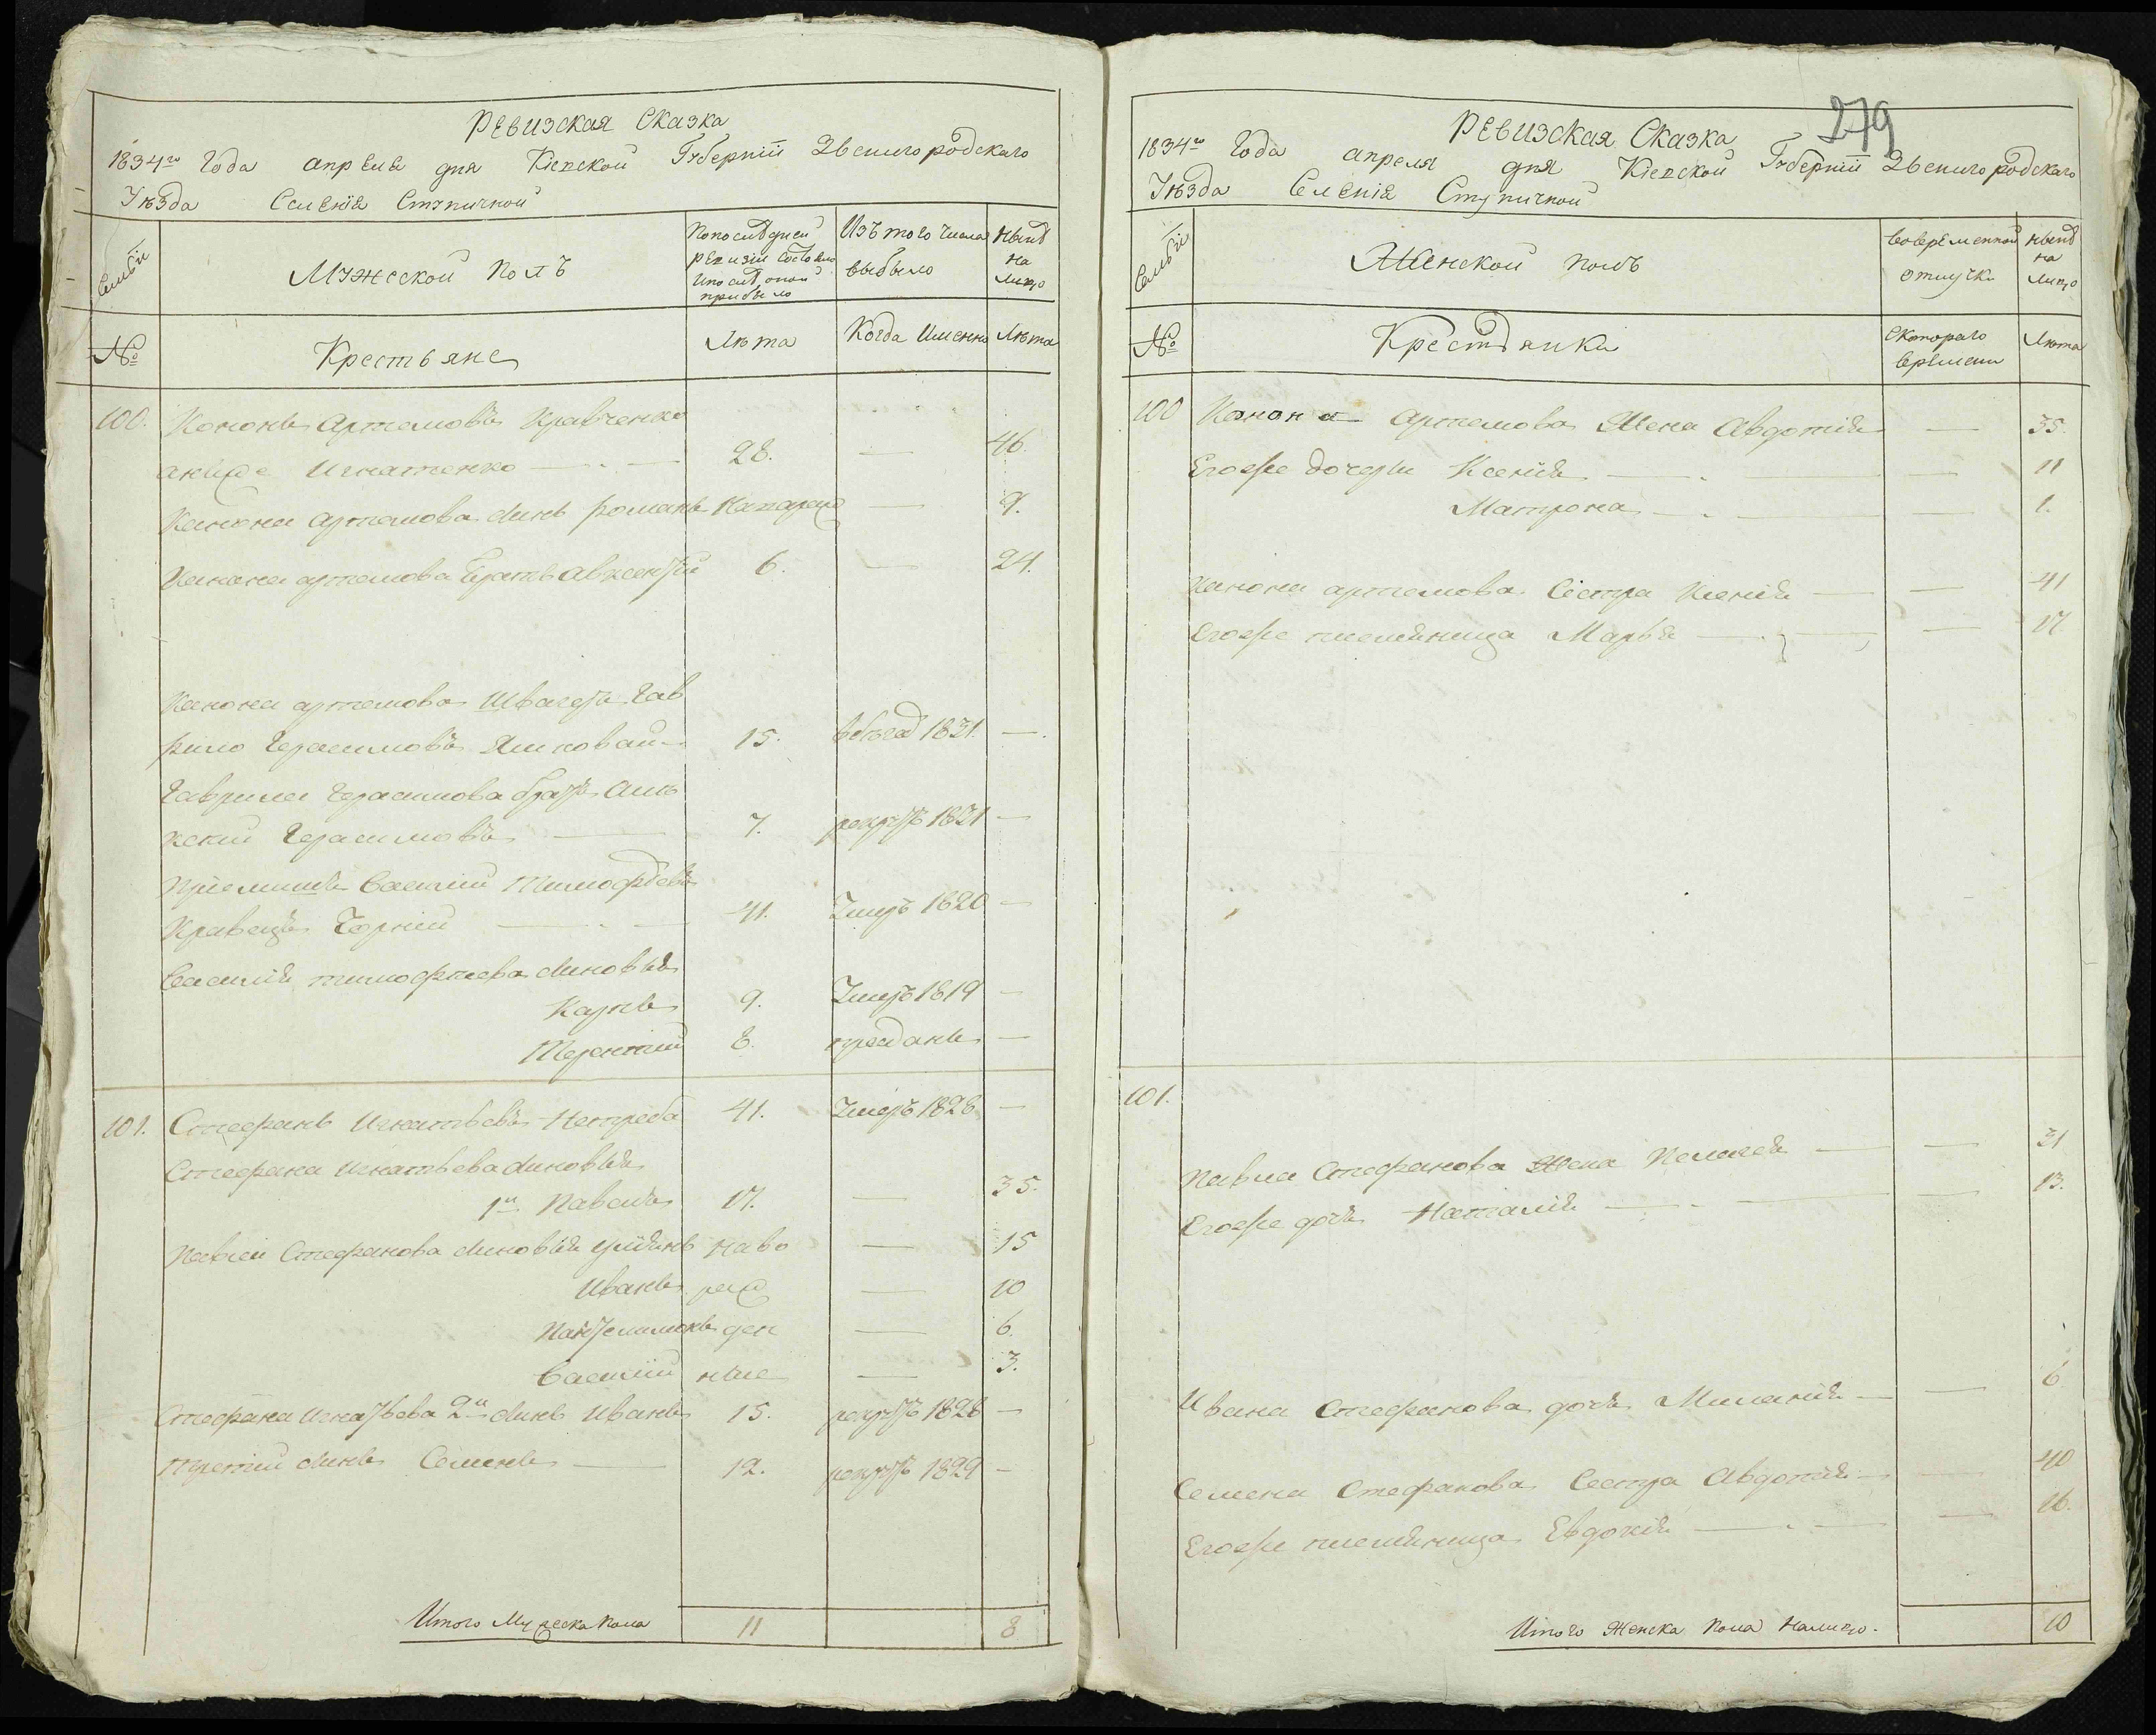 РЕВИЗСКАЯ Сказка
1834го Года апреля дня Кіевской Губерніи Звенигородскаго
Уѣзда Селенія Ступичной
Семьи
Мужеской полъ
По последней ревизіи состояло и после оной прибыло
Изъ того числа выбыло
Нынѣ на лицо
№
Крестьяне
Лѣта
Когда Именно
Лѣта
100. Кононъ Артемовъ Кравченко
а нище Игнатенко 28. — 46.
Канона Артемова сынъ романъ На парещ — 9.
Канона артемова братъ Авксентій 6. — 24.
Канона артемова Швагеръ Гав
рило Герасимовъ 15. в бѣгах 1831. —
Гаврила Герасимова братъ Алек
Герасимовъ 7. рекрутъ 1821 —
Пріемышъ Василій Тимофѣевъ
Кравецъ Чорній 41. Умеръ 1820 —
Василія тимофеева сыновья
Карпъ 9. Умеръ 1819 —
Терентій 8. —
101. Стефанъ Игнатьевъ Нетреба 41. Умеръ 1828 —
Стефана Игнатьева сыновья
1й Павелъ 17. — 35.
Павла Стефанова сыновья Уліянъ наво — 15
Иванъ рож — 10
Пантелимонъ ден — 6.
Василій ные — 3.
Стефана Игнатьева 2й сынъ Иванъ 15. рекрутъ 1828 —
третій сынъ Семенъ — 12. рекрутъ 1829 —
Итого Мужеска пола 11 8
279
РЕВИЗСКАЯ Сказка
1834го Года апреля дня Кіевской Губерніи Звенигородскаго
Уѣзда Селенія Ступичной
Семьи
Женской полъ
Во временной отлучки
Нынѣ на лицо
№
Крестьянки
С котораго времени
Лѣта
100 Конона Артемова Жена Авдотія — 35.
Егоже дочери Ксенія — 11
Матрона — 1.
Канона артемова Сестра Ксенія — 41
Егоже племяница Марья — 17.
101.
Павла Стефанова Жена Пелагея — 31
Егоже дочь Наталія — 13.
Ивана Стефанова дочь Миланія — 6
Семена Стефанова Сестра Авдотія — 40
Егоже племяница Евдокія — 16.
Итого Женска Пола Налицо. 10